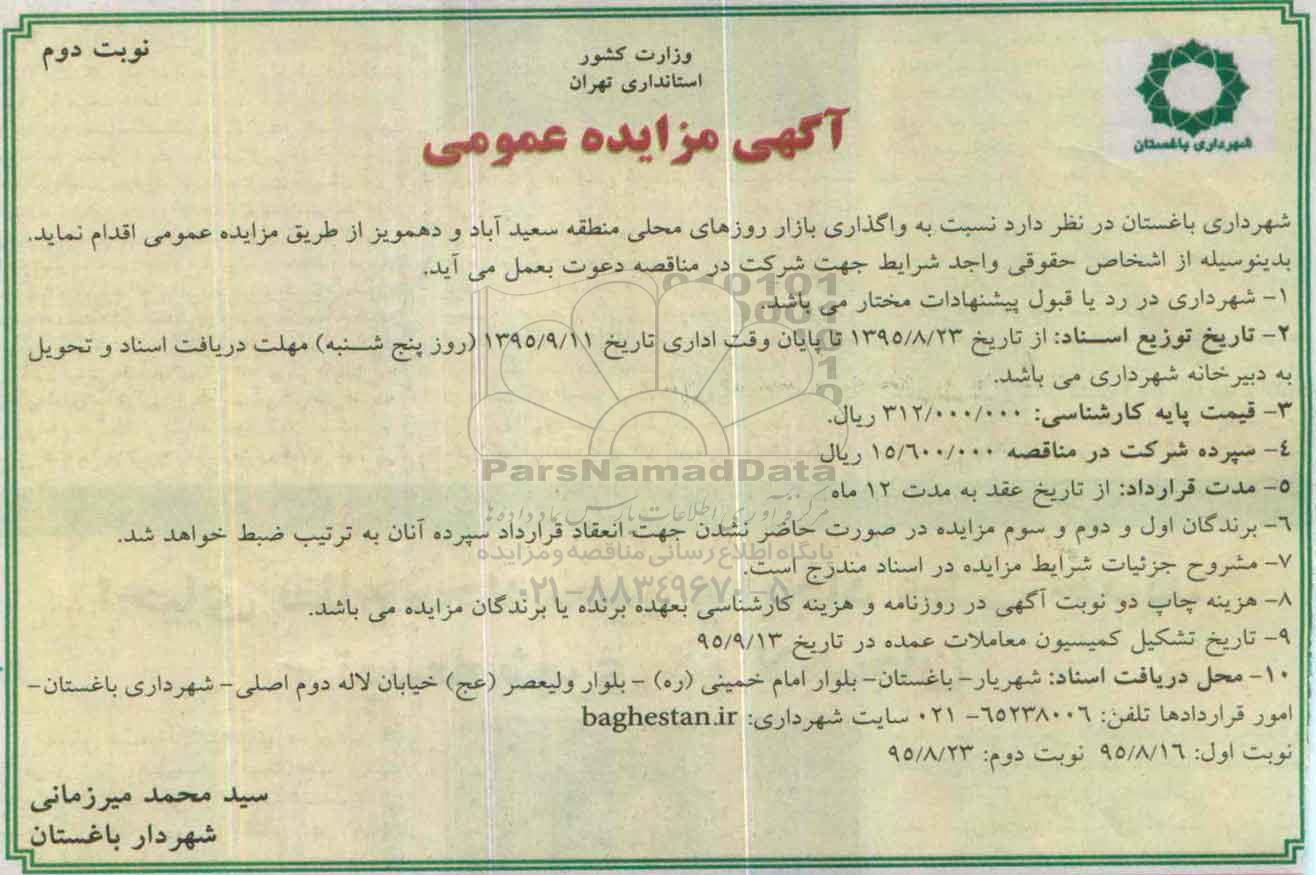 نوبت دوم
وزارت کشور
استانداری تهران
شهرداری باغستان
آگهی مزایده عمومی
شهرداری باغستان در نظر دارد نسبت به واگذاری بازار روزهای محلی منطقه سعید آباد و دهمویز از طریق مزایده عمومی اقدام نماید.
بدینوسیله از اشخاص حقوقی واجد شرایط جهت شرکت در مناقصه دعوت بعمل می آید.
۱- شهرداری در رد یا قبول پیشنهادات مختار می باشد.
۲- تاریخ توزیع اسناد: از تاریخ ۱۳۹۵/۸/۲۳ تا پایان وقت اداری تاریخ ۱۳۹۵/۹/۱۱ (روز پنج شنبه) مهلت دریافت اسناد و تحویل
به دبیرخانه شهرداری می باشد.
۳- قیمت پایه کارشناسی: ۳۱۲/۰۰۰/۰۰۰ ریال.
۴- سپرده شرکت در مناقصه ۱۵/۶۰۰/۰۰۰ ریال
ParsNamadData
۵- مدت قرارداد: از تاریخ عقد به مدت ۱۲ ماه
مرکز فرآوری اطلاعات پارس نماد داده ها
۶- برندگان اول و دوم و سوم مزایده در صورت حاضر نشدن جهت انعقاد قرارداد سپرده آنان به ترتیب ضبط خواهد شد.
پایگاه اطلاع رسانی مناقصه و مزایده
۷- مشروح جزئیات شرایط مزایده در اسناد مندرج است.
۰۲۱-۸۸۳۴۹۶۷۰-۵
۸- هزینه چاپ دو نوبت آگهی در روزنامه و هزینه کارشناسی بعهده برنده یا برندگان مزایده می باشد.
۹- تاریخ تشکیل کمیسیون معاملات عمده در تاریخ ۹۵/۹/۱۳
۱۰- محل دریافت اسناد: شهریار- باغستان- بلوار امام خمینی (ره) - بلوار ولیعصر (عج) خیابان لاله دوم اصلی- شهرداری باغستان-
امور قراردادها تلفن: ۶۵۲۳۸۰۰۶- ۰۲۱ سایت شهرداری: baghestan.ir
نوبت اول: ۹۵/۸/۱۶ نوبت دوم: ۹۵/۸/۲۳
سید محمد میرزمانی
شهردار باغستان